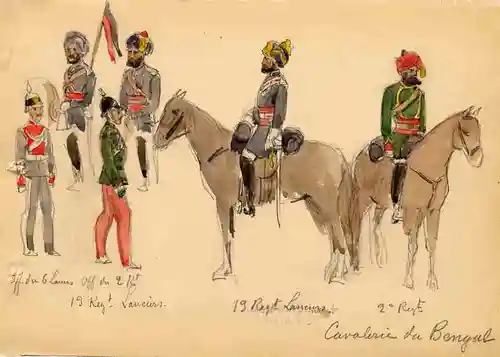 Off. du 6 Lanc. Off du 2 Rgt
19 Regt. Lanciers.
19 Regt Lanciers
2e Regt.
Cavalerie du Bengal